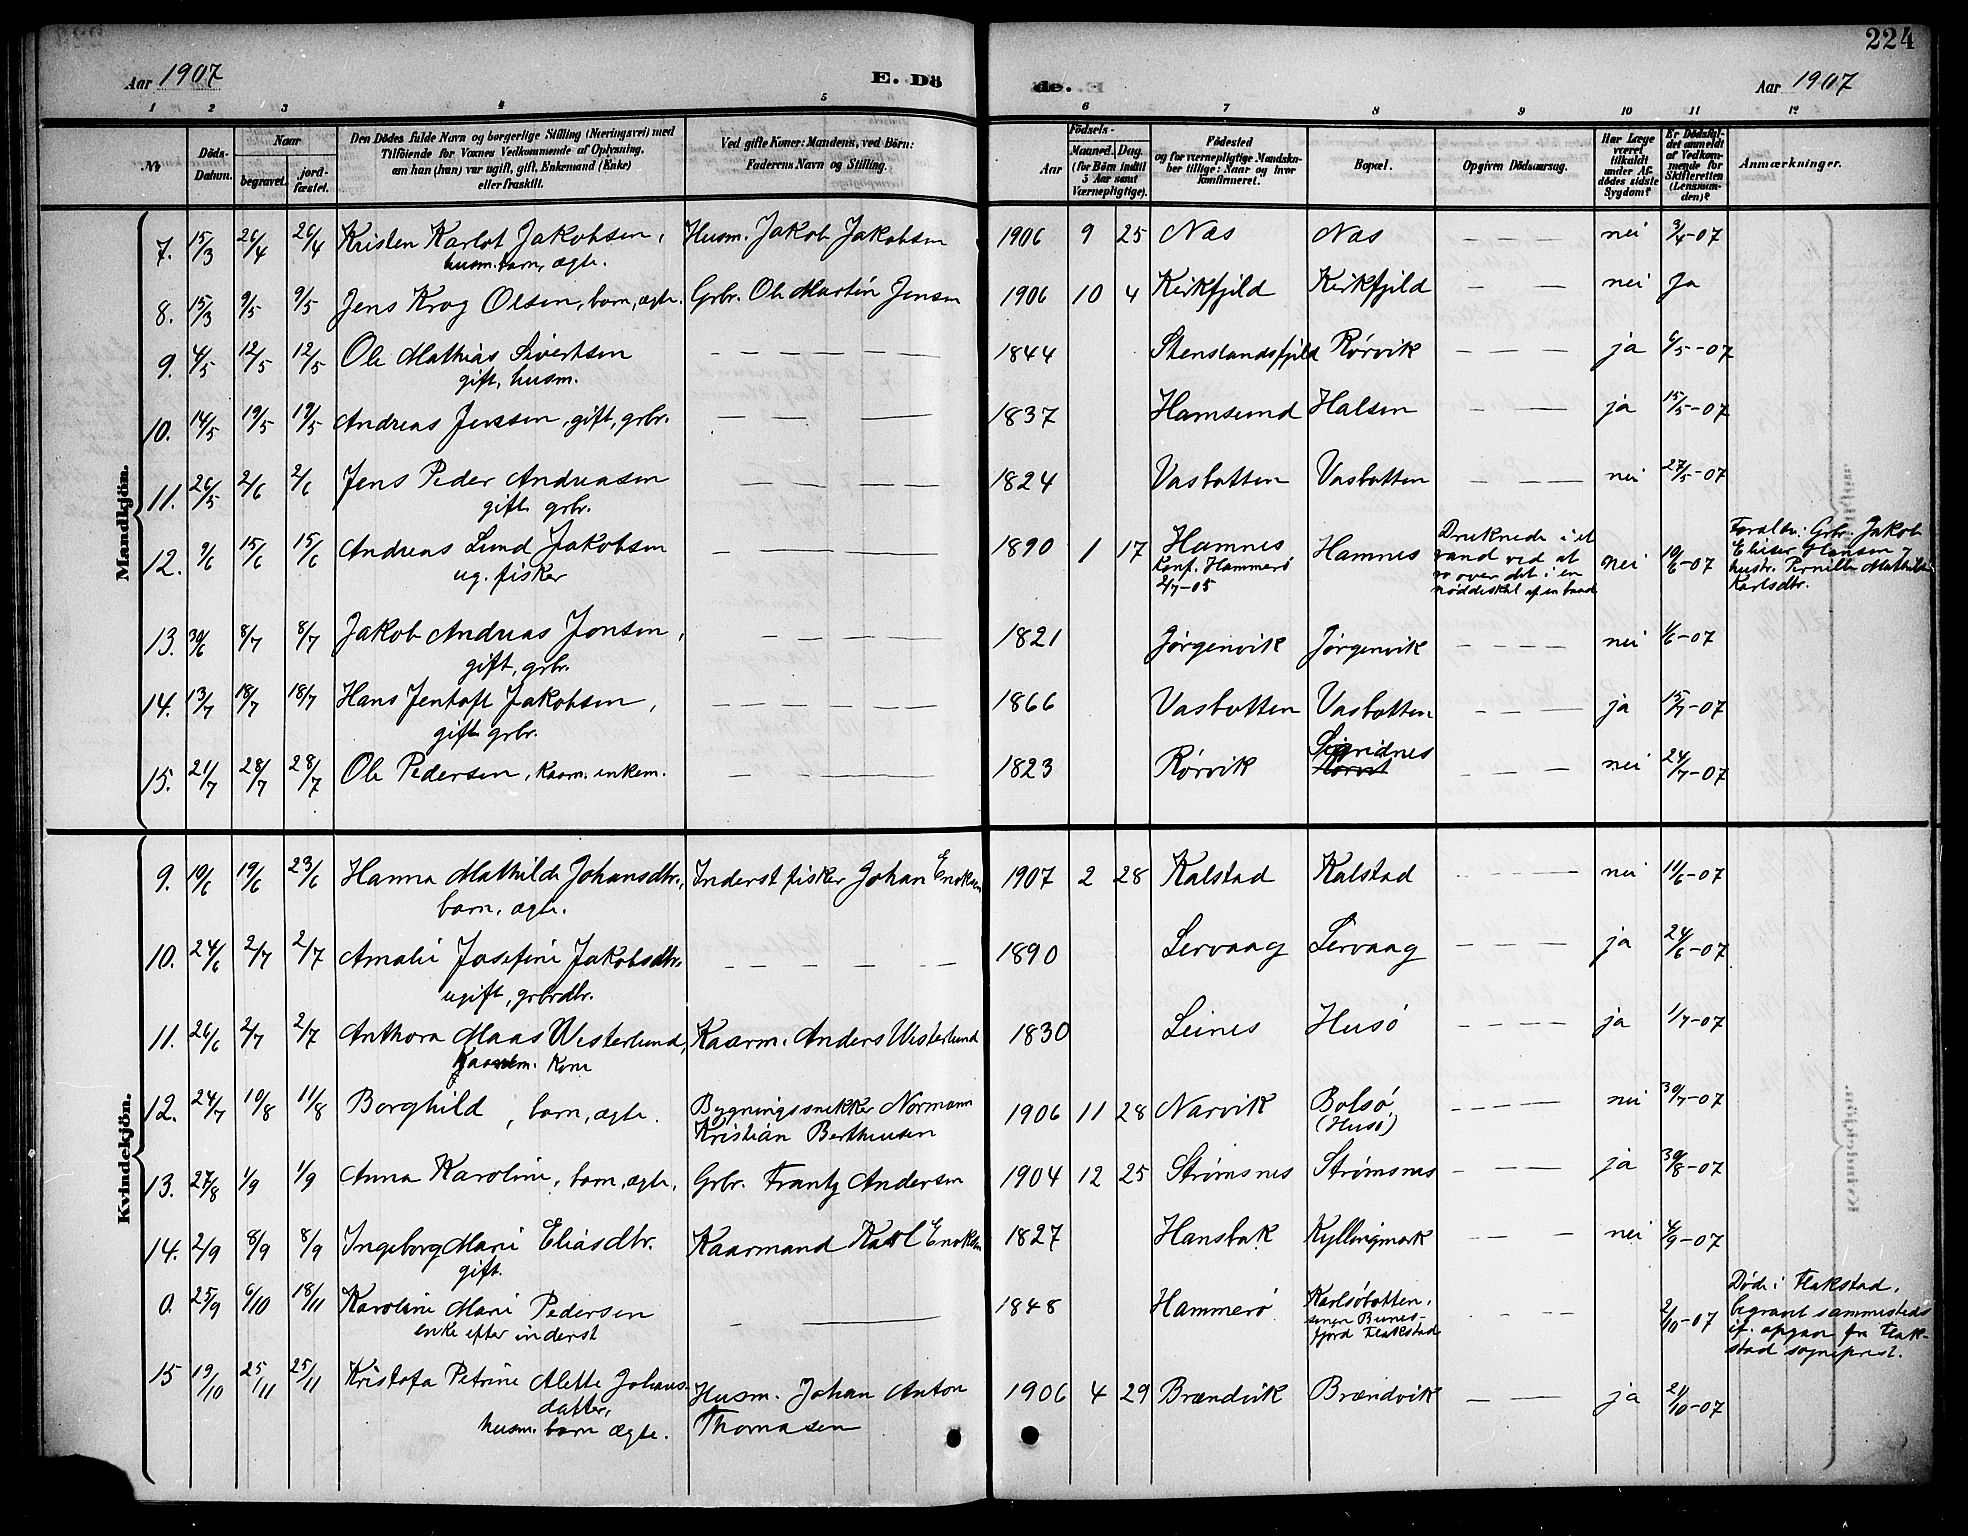 224
Aar 1907 E. Dö de. Aar 1907
1 2 3 4 5 6 7 8 9 10 11 12
№
Döds-Datum.
Naar
begravet.
jordfæstet.
Den Dödes fulde Navn og borgerlige Stilling (Næringsvei) med
Tilföiende for Voxnes Vedkommende af Oplysning,
om han (hun) var ugift, gift, Enkemand (Enke)
eller fraskilt.
Ved gifte Koner: Mandens, ved Börn:
Faderens Navn og Stilling.
Födsels-
Aar
Maaned. Dag.
(for Börn indtil
5 Aar samt
Værnepligtige).
Födested
og for værnepligtige Mandska-
ber tillige: Naar og hvor
konfirmeret.
Bopæl.
Opgiven Dödsaarsag.
Har Læge
været
tilkaldt
under Af-
dödes sidste
Sygdom?
Er Dödsfal-
det anmeldt
af Vedkom-
mende for
Skifteretten
(Lensman-
den)?
Anmærkninger.
Mandkjön.
7. 15/3 26/4 26/4 Kristen Karlot Jakobsen, Husm. Jakob Jakobsen 1906 9 25 Næs Næs — — — nei 3/4-07
husm. barn, ægte.
8. 15/3 9/5 9/5 Jens Krog Olsen, barn, ægte. Grbr. Ole Martin Jensen 1906 10 4 Kirkfjeld Kirkfjeld — — nei Ja
9. 4/5 12/5 12/5 Ole Mathias Sivertsen — — — — — 1844 Stenslandsfjeld Rørvik — — — ja 6/5-07
gift, husm.
10. 14/5 19/5 19/5 Andreas Jenssen, gift, grbr. — — — 1837 Hamsund Halsen — — — ja 15/5-07
11. 26/5 2/6 2/6 Jens Peder Andreasen — — — — 1824 Vasbotten Vasbotten — — — nei 27/5-07
gift grbr.
12. 9/6 15/6 15/6 Andreas Lund Jakobsen — — — — 1890 1 17 Hamnes Hamnes nei 10/6-07
ug. fisker
Konf. Hammerø
2/7-05
Druknede i et
vand ved at
ro over det i en
nøddeskal af en baad
Foraldre: Grbr. Jakob
Eliser Hansen &
hustr. Pernille Mathilde
Karlsdtr.
13. 30/6 8/7 8/7 Jakob Andreas Jonsen, — — — — 1821 Jørgenvik Jørgenvik — — — nei 1/6-07
gift, grbr.
14. 13/7 18/7 18/7 Hans Jentoft Jakobsen, — — — — 1866 Vasbotten Vasbotten — — — ja 15/7-07
gift grbr.
15. 21/7 28/7 28/7 Ole Pedersen, kaarm. enkem. — — — 1823 Rørvik Sigridnes — — — nei 24/7-07
Kvindekjön.
9. 10/6 19/6 23/6 Hanna Mathilde Johansdtr., Inderst fisker Johan Enoksen 1907 2 28 Kalstad Kalstad — — — nei 11/6-07
barn, ægte.
10. 24/6 2/7 2/7 Amalie Josefine Jakobsdtr. — — — — — 1890 Lervaag Lervaag — — — ja 24/6-07
ugift, grbrdtr.
11. 26/6 2/7 2/7 Anthora Maas Westerlund, Kaarm. Anders Westerlund 1830 Leines Husø — — — ja 1/7-07
Kaarm. Kone
12. 24/7 10/8 11/8 Borghild, barn, ægte. Bygningssnekker Normann 1906 11 28 Narvik Bolsø — — — nei 30/7-07
Kristian Bertheusen (Husø)
13. 27/8 1/9 1/9 Anna Karoline, barn, ægte, Grbr. Frantz Andersen 1904 12 25 Strømsnes Strømsnes — — — ja 30/8-07
14. 2/9 8/9 8/9 Ingeborg Marie Eliasdtr. Kaarmand Karl Enoksen 1827 Hansbak Kyllingmark — — — nei 4/9-07
gift.
0. 25/9 6/10 18/11 Karoline Marie Pedersen — — 1848 Hammerø Karlsøbotten, — — 2/10-07
enke efter inderst
senere Bunes-
fjord Flakstad
Døde i Flakstad,
begravet sammesteds
if. opgave fra Flak-
stad sogneprest.
15 19/10 25/11 25/11 Kristofa Petrine Alette Johans- Husm. Johan Anton 1906 4 29 Brændvik Brændvik — — ja 21/10-07
datter, Thomasen
husm. barn ægte.